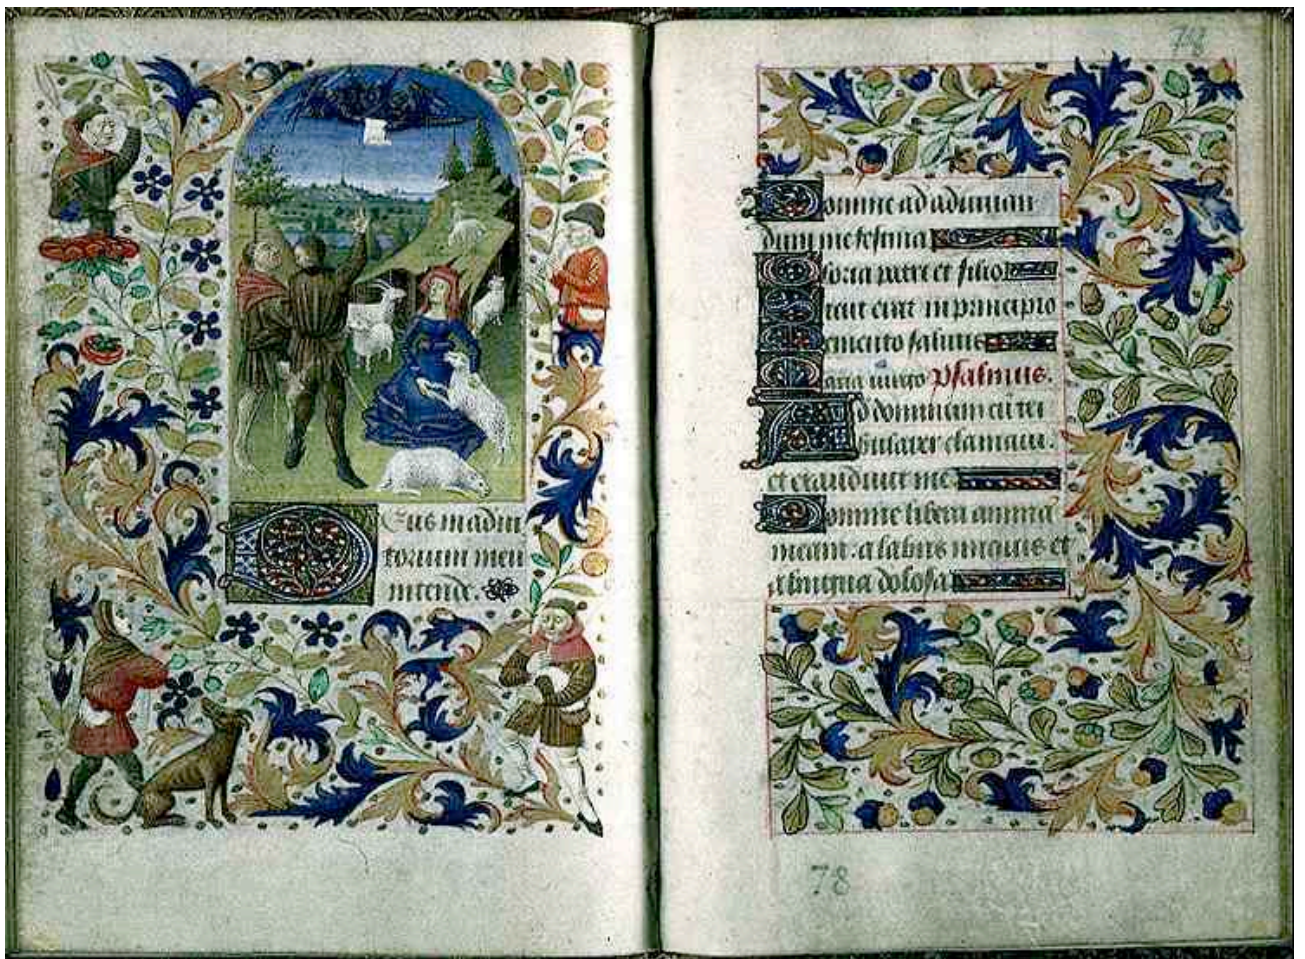 Deus in adiu
torium meu
intende.
78
Domine ad adiuuan
dum me festina
Gloria patri et filio
Sicut erat in principio
Memento salutis
Maria uirgo Psalmus.
Ad dominum cu tri
bularer clamaui.
et exaudiuit me
Domine libera anima
meam: a labiis iniquis et
a lingua dolosa
78